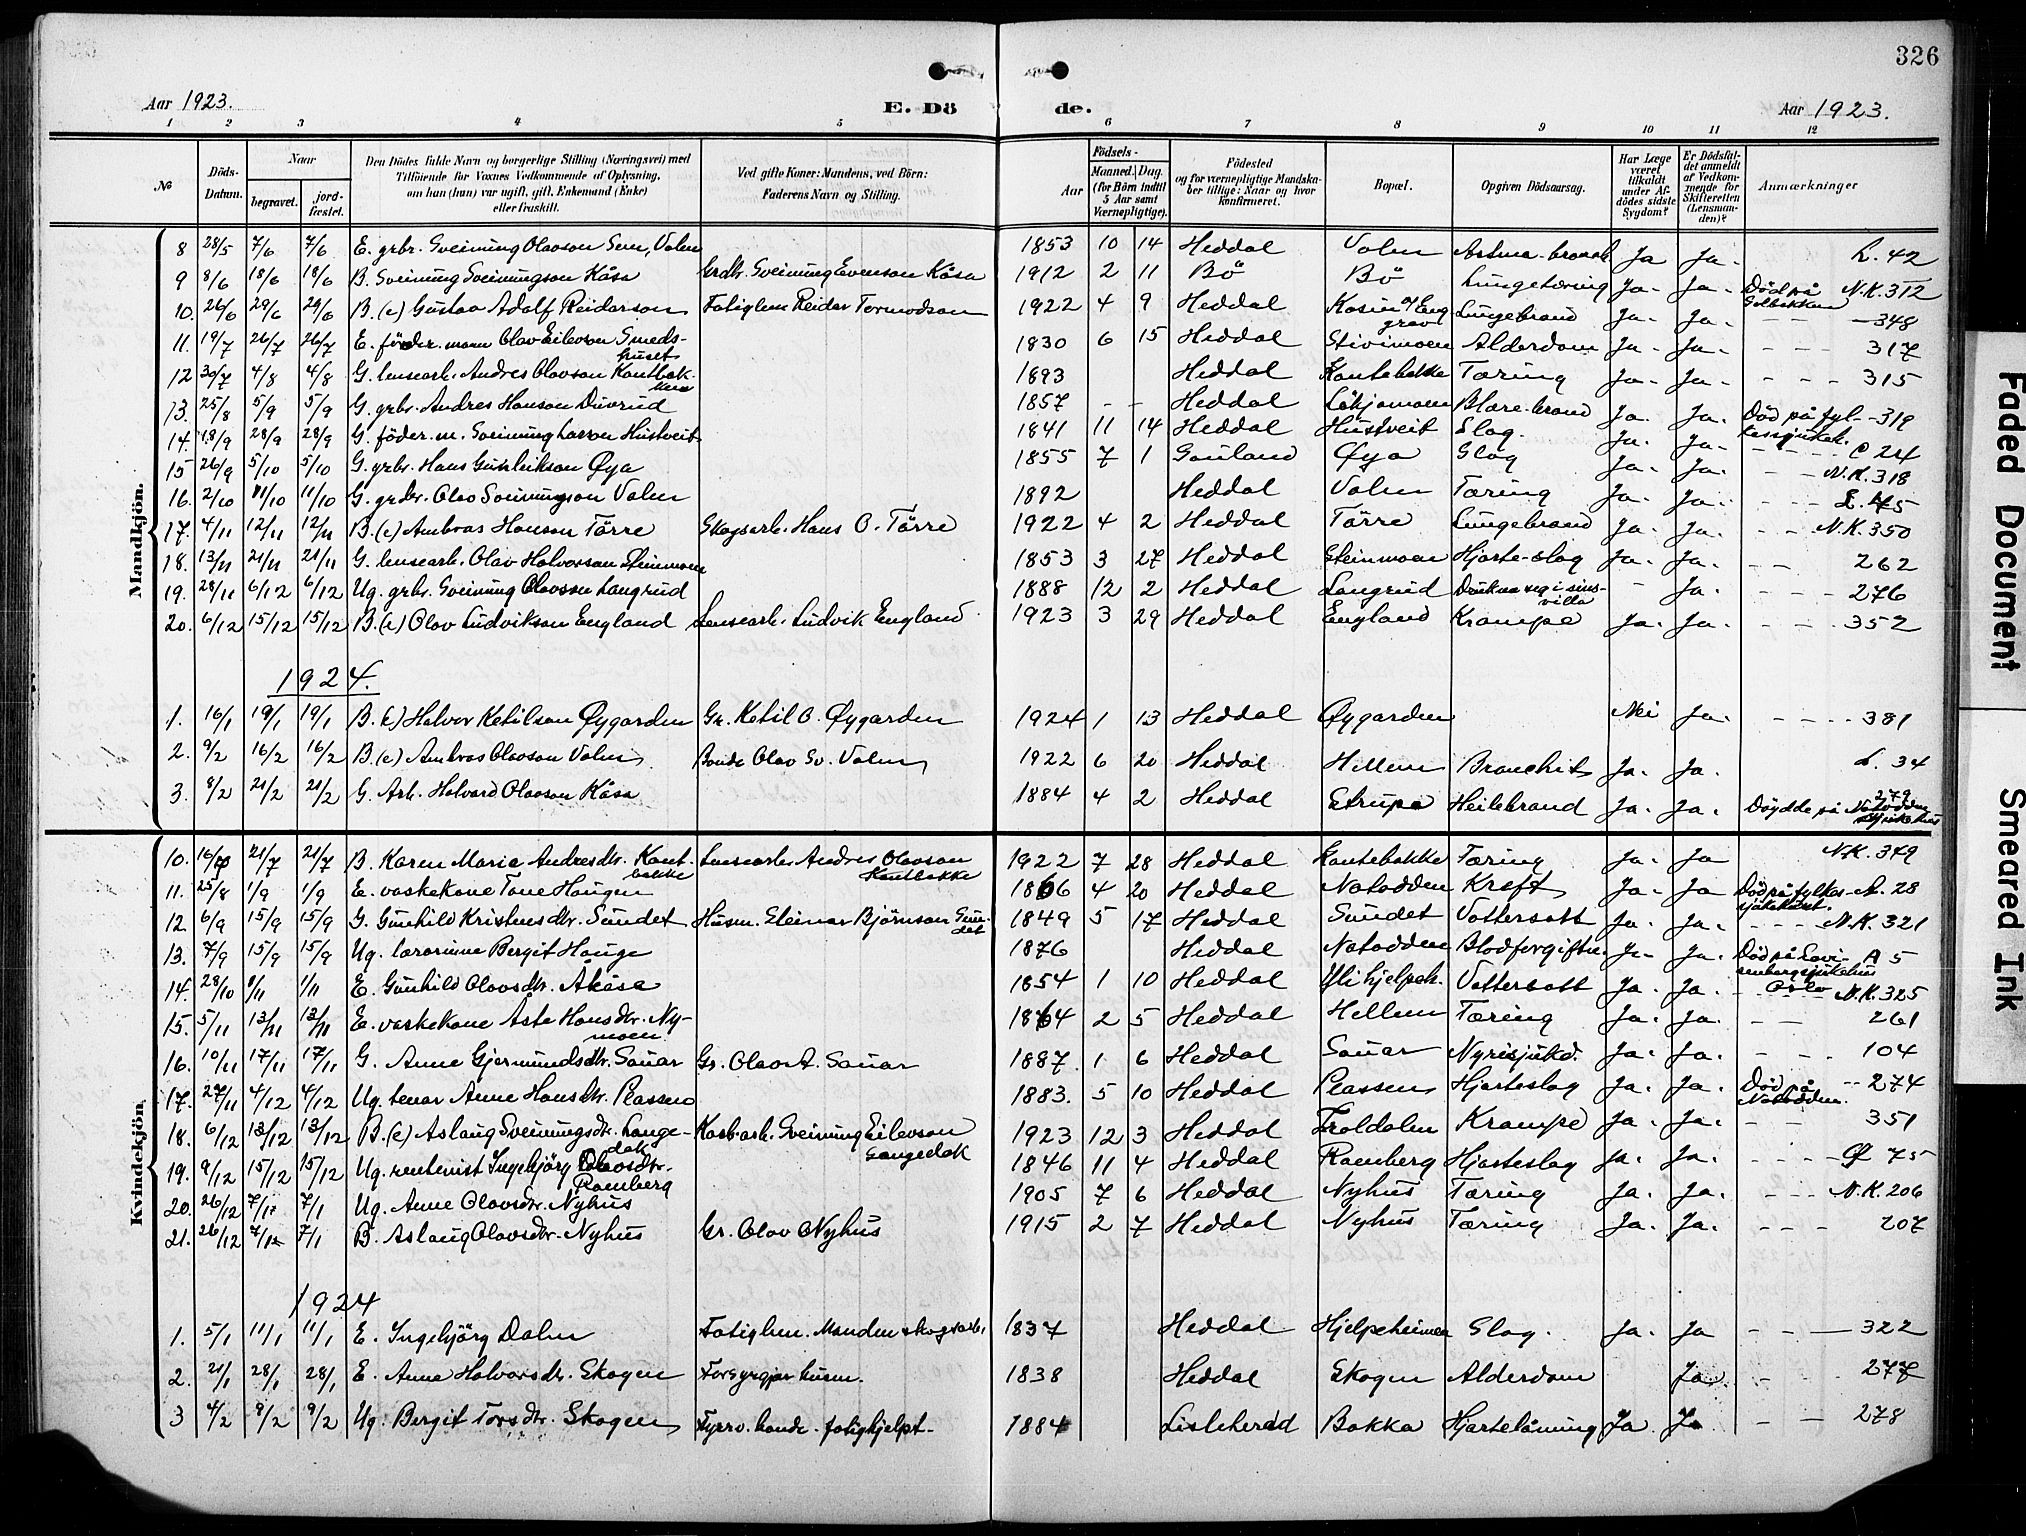 326
Aar 1923. E. Dö de. Aar 1923.
1 2 3 4 5 6 7 8 9 10 11 12
№
Döds-Datum.
Naar
begravet.
jord-fæstet.
Den Dödes fulde Navn og borgerlige Stilling (Næringsvei) med
Tilföiende for Voxnes Vedkommende af Oplysning,
om han (hun) var ugift, gift, Enkemand (Enke)
eller fraskilt.
Ved gifte Koner: Mandens, ved Börn:
Faderens Navn og Stilling.
Födsels-
Aar Maaned. Dag.
(for Börn indtil
5 Aar samt
Værnepligtige).
Födested
og for værnepligtige Mandska-
ber tillige: Naar og hvor
konfirmeret.
Bopæl.
Opgiven Dödsaarsag.
Har Læge
været
tilkaldt
under Af-
dödes sidste
Sygdom?
Er Dödsfal-
det anmeldt
af Vedkom-
mende for
Skifteretten
(Lensman-
den)?
Anmærkninger
Mandkjön.
8 28/5 7/6 7/6 E. grbr. Sveinung Olavson Sem, Valen 1853 10 14 Heddal Valen Astma-bronch Ja Ja. L. 42
9 8/6 18/6 18/6 B. Sveinung Sveinungson Kåsa Grdbr. Sveinung Evenson Kåsa 1912 2 11 Bö Bö Lungetæring Ja- Ja- Död på N.K. 312
10. 26/6 29/6 29/6 B. (e) Gustav Adolf Reidarson Fatiglem Reidar Tormodson 1922 4 9 Heddal Lungebrand Ja- Ja- 348
11. 19/7 26/7 26/7 E. föder. mann Olav Eilevson Smeds-
huset 1830 6 15 Heddal Stivimoen Alderdom Ja- Ja- 317
12 30/7 4/8 4/8 G. lensearb. Andres Olavson Kantbak-
ken 1893 Heddal Kantebakke Tæring Ja- Ja- 315
13. 25/8 5/9 5/9 G. grbr. Andres Hanson Duvrud 1857 - - Heddal Blære-brand Ja. Ja. Död på fyl- 319
14. 18/9 28/9 28/9 G. föder. m. Sveinung Larson Hustveit 1841 11 14 Heddal Hustveit Slag. Ja. Ja- kessjukeh. C 24
15 26/9 5/10 5/10 G. grbr. Hans Gunleikson Øya 1855 7 1 Gauland Øya Slag Ja- Ja. N.K. 318
16. 2/10 11/10 11/10 G. grbr. Olav Sveinungson Valen 1892 Heddal Valen Tæring Ja- Ja. L. 45
17. 4/11 12/11 12/11 B. (e) Ambros Hanson Törre Skogsarb. Hans O. Törre 1922 4 2 Heddal Törre Lungebrand Ja. Ja- N.K. 350
18. 13/11 21/11 21/11 G. lensearb. Olav Halvorson Steinmoen 1853 3 27 Heddal Steinmoen Hjarte-slag Ja- Ja- 262
19. 28/11 6/12 6/12 Ug. grbr. Sveinung Olavson Langrud 1888 12 2 Heddal Langrud Druknaseg i sins-
villa - Ja. 276
20. 6/12 15/12 15/12 B. (e) Olav Ludvikson England Lensearb. Ludvik England 1923 3 29 Heddal England Krampe Ja. Ja. 352
1924.
1. 16/1 19/1 19/1 B. (e) Halvor Ketilson Øygarden Gr. Ketil O. Øygarden 1924 1 13 Heddal Øygarden Nei Ja. 381
2. 9/2 16/2 16/2 B. (e) Ambros Olavson Valen Bonde Olav Sv. Valen 1922 6 20 Heddal Hellem Bronchit Ja. Ja. L. 34
3. 8/2 21/2 21/2 G. Arb. Halvard Olavson Kåsa 1884 4 2 Heddal Strupa Heilebrand Ja- Ja. Döydde på Notodden
sjukehus 279
Kvindekjön.
10. 16/7 21/7 21/7 B. Karen Maria Andresdtr. Kant-
bakke Lensearb. Andres Olavson
Kantbakke 1922 7 28 Heddal Kantebakke Tæring Ja. Ja N.K. 349
11. 25/8 1/9 1/9 E. vaskekone Tone Haugen 1866 4 20 Heddal Notodden Kreft Ja- Ja Död på fylkes- 28
sjukehuset.
12 6/9 15/9 15/9 G. Gunhild Kristensdtr. Sundet Husm. Steinar Björnson Sun-
det 1849 5 17 Heddal Sundet Vattersott Ja. Ja. N.K. 321
13. 7/9 15/9 15/9 Ug. lærarinne Bergit Hauge 1876 Heddal Notodden Blodforgiftn. Ja- Ja. Död på Lovi- A 5
senbergsjukehus
Oslo
14. 28/10 1/11 1/11 E. Gunhild Olavsdtr. Åkåsa 1854 1 10 Heddal Yli hjelpeh. Vattersott Ja. Ja. N.K. 325
15. 5/11 13/11 13/11 E. vaskekone Åste Hansdtr. Ny-
moen 1864 2 5 Heddal Hellem Tæring Ja. Ja. 261
16. 10/11 17/11 17/11 G. Anne Gjermundsdtr. Sauar Gr. Olav A. Sauar 1887. 1 6 Heddal Sauar Nyresjukd. Ja. Ja. 104
17. 27/11 4/12 4/12 Ug. tenar Anne Hansdtr. Plassen 1883. 5 10 Heddal Plassen Hjarteslag Ja. Ja. Död på
Notodden. 274
18. 6/12 13/12 13/12 B. (e) Aslaug Sveinungsdtr. Lange-
dak Sveinung Eilevson
Langedak 1923 12 3 Heddal Troldalen Krampe Ja- Ja. 351
19. 9/12 15/12 15/12 Ug. rentenist Ingebjörg Olavsdtr.
Ramberg 1846 11 4 Heddal Ramberg Hjarteslag Ja. Ja. 75
20. 26/12 7/1 7/1 Ug. Anne Olavsdtr. Nyhus 1905 7 6 Heddal Nyhus Tæring Ja. Ja. N.K. 206
21. 26/12 7/1 7/1 B. Aslaug Olavsdtr. Nyhus Gr. Olav Nyhus 1915 2 7 Heddal Nyhus Tæring Ja. Ja. 207
1924
1. 5/1 11/1 11/1 E. Ingebjörg Dalen Fatighen. Manden skogsarb. 1837 Heddal Hjelpeheimen Slag. Ja. Ja 322
2. 21/1 28/1 28/1 E. Anne Halvorsdtr. Skogen Forsyrgjar husm. 1838 Heddal Skogen Alderdom Ja. 277
3 4/2 9/2 9/2 Ug. Bergit Torsdtr. Skogen Fyrrv. bonde. fatighjelpt. 1884 Lisleherad Bakka Hjartelåming Ja Ja 278
Faded Document
Smeared Ink